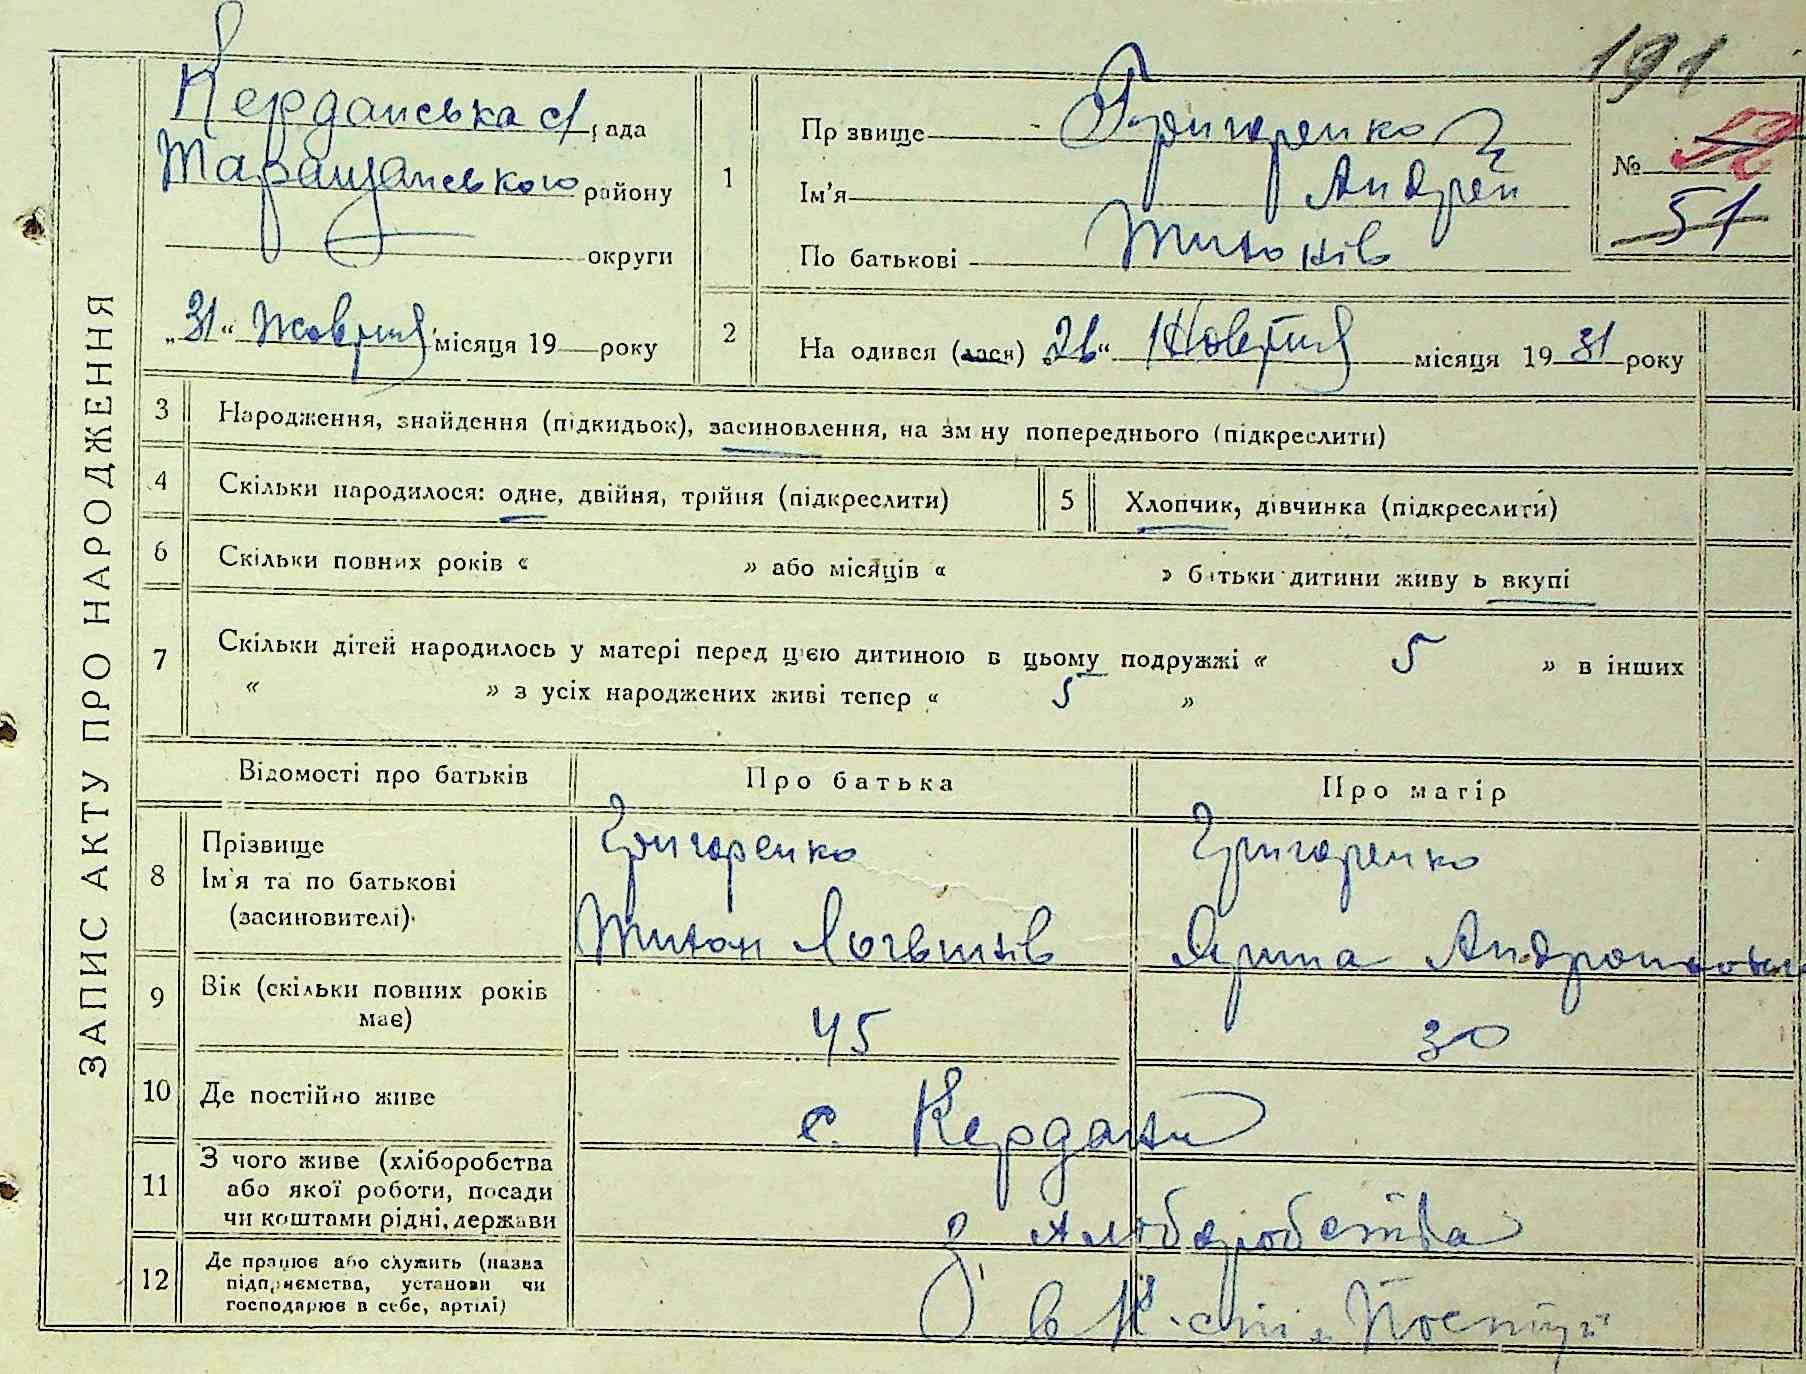 191
ЗАПИС АКТУ ПРО НАРОДЖЕННЯ
Керданська с/рада
Таращанського району
округи
„31“ Жовтня місяця 19 року
1
Прізвище Григоренко
Ім'я Андрей
По батькові Тихонів
№
51
2
На одився (лася) 26“ Жовтня місяця 19 31 року
3 Народження, знайдення (підкидьок), засиновлення, на зм ну попереднього (підкреслити)
4 Скільки народилося: одне, двійня, трійня (підкреслити)
5 Хлопчик, дівчинка (підкреслити)
6 Скільки повних років « » або місяців « » батьки дитини живу ь вкупі
7 Скільки дітей народилось у матері перед цією дитиною в цьому подружжі « 5 » в інших
« » з усіх народжених живі тепер « 5 »
Відомості про батьків Про батька Про матір
8 Прізвище
Ім'я та по батькові
(засиновителі)
Григоренко
Тихон Логвинів
Григоренко
Ярина
9 Вік (скільки повних років має)
45
30
10 Де постійно живе
с. Кердани
11 З чого живе (хліборобства
або якої роботи, посади
чи коштами рідні, держави
З хліборобства
12 Де працює або служить (назва
підприємства, установи чи
господарює в себе, артілі)
в